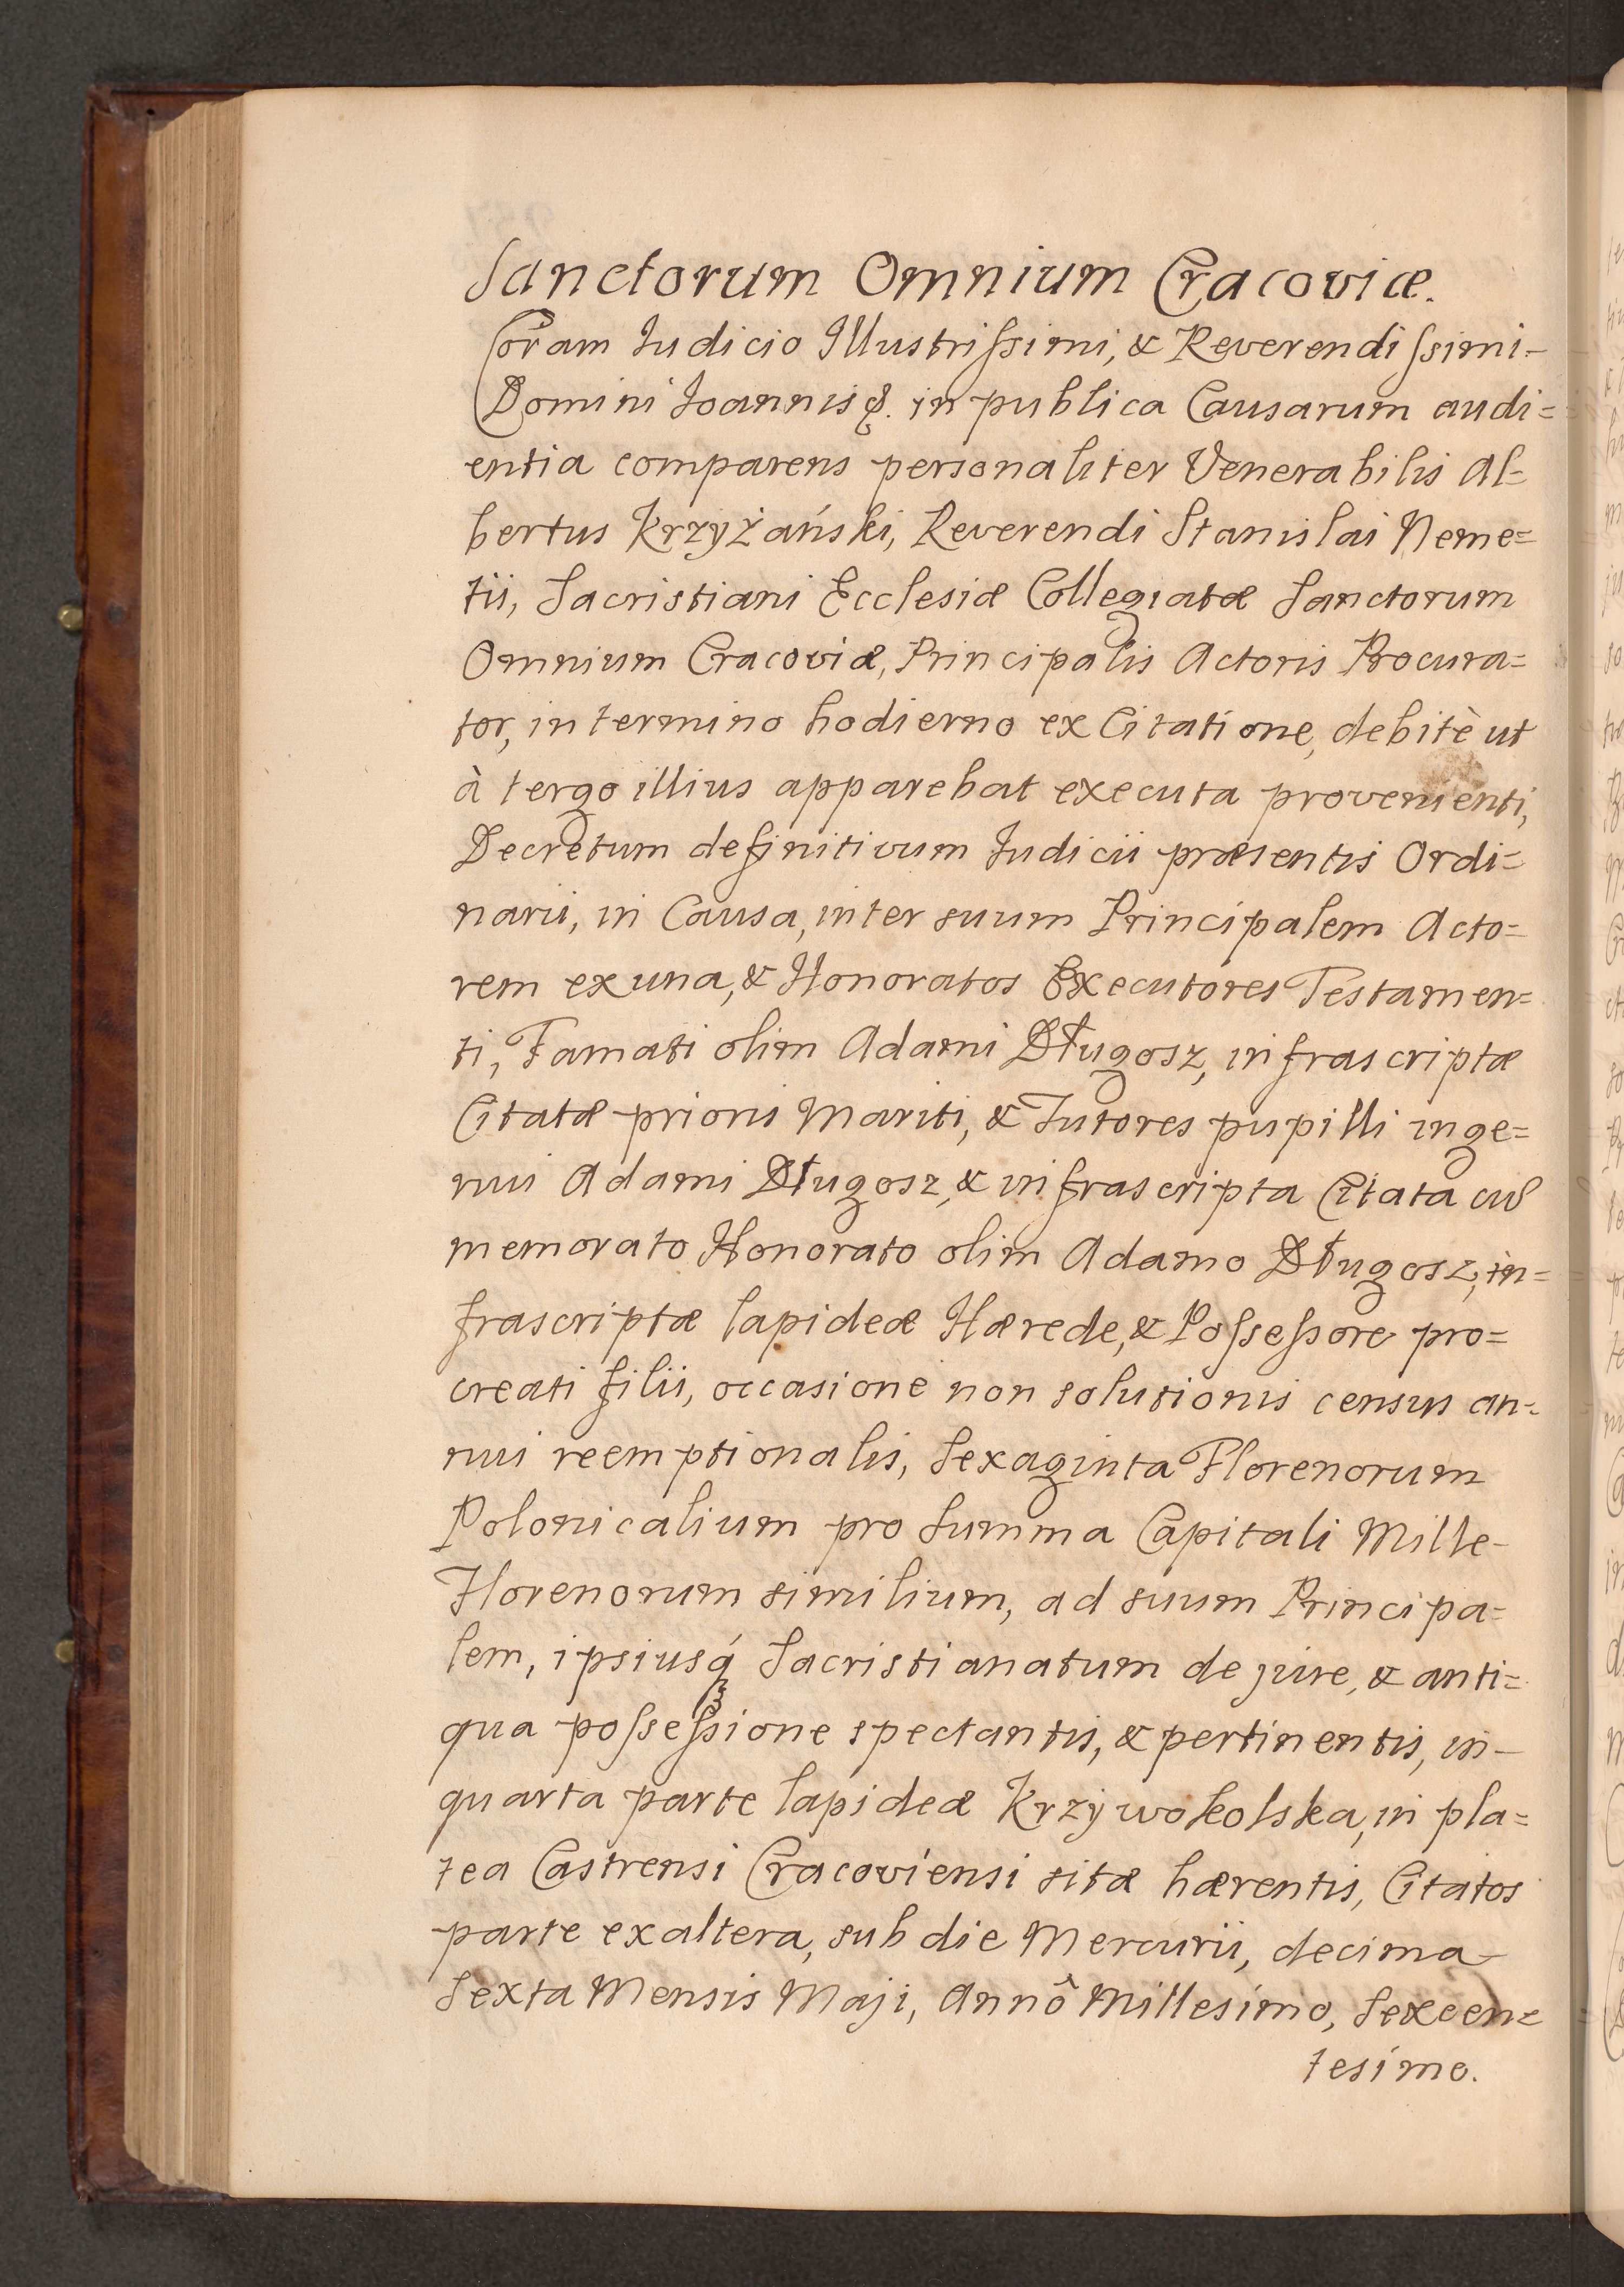 Sanctorum Omnium Cracoviæ.
Coram Iudicio Illustrissimi, & Reverendissimi-
Domini Ioannis &. in publica Causarum audi=
entia comparens personaliter Venerabilis Al=
bertus Krzyżański, Reverendi Stanislai Neme=
tii, Sacristiani Ecclesiæ Collegiatæ Sanctorum
Omnium Cracoviæ, Principalis Actoris Procura=
tor, in termino hodierno ex Citatione, debitè ut
à tergo illius apparebat executa provenienti,
Decretum definitivum Iudicii præsentis Ordi=
narii, in Causa, inter suum Principalem Acto=
rem ex una, & Honoratos Executores Testamen=
ti, Famati olim Adami Długosz, infrascriptæ
Citatæ prioris Mariti, & Tutores pupilli inge=
nui Adami Długosz, & infrascripta Citata cu
memorato Honorato olim Adamo Długosz, in=
frascriptæ lapideæ Hærede, & Possessore pro=
creati filii, occasione non solutionis census an=
nui reemptionalis, Sexaginta Florenorum
Polonicalium pro Summa Capitali Mille-
Florenorum similium, ad suum Principa=
lem, ipsiusq́ Sacristianatum de jure, & anti=
qua possessione spectantis, & pertinentis, in-
quarta parte lapideæ Krzywokolska, in pla=
tea Castrensi Cracoviensi sitæ hærentis, Citatos
parte ex altera, sub die Mercurii, decima-
Sexta Mensis Maji, Annô Millesimo, Sexcen=
tesimo.